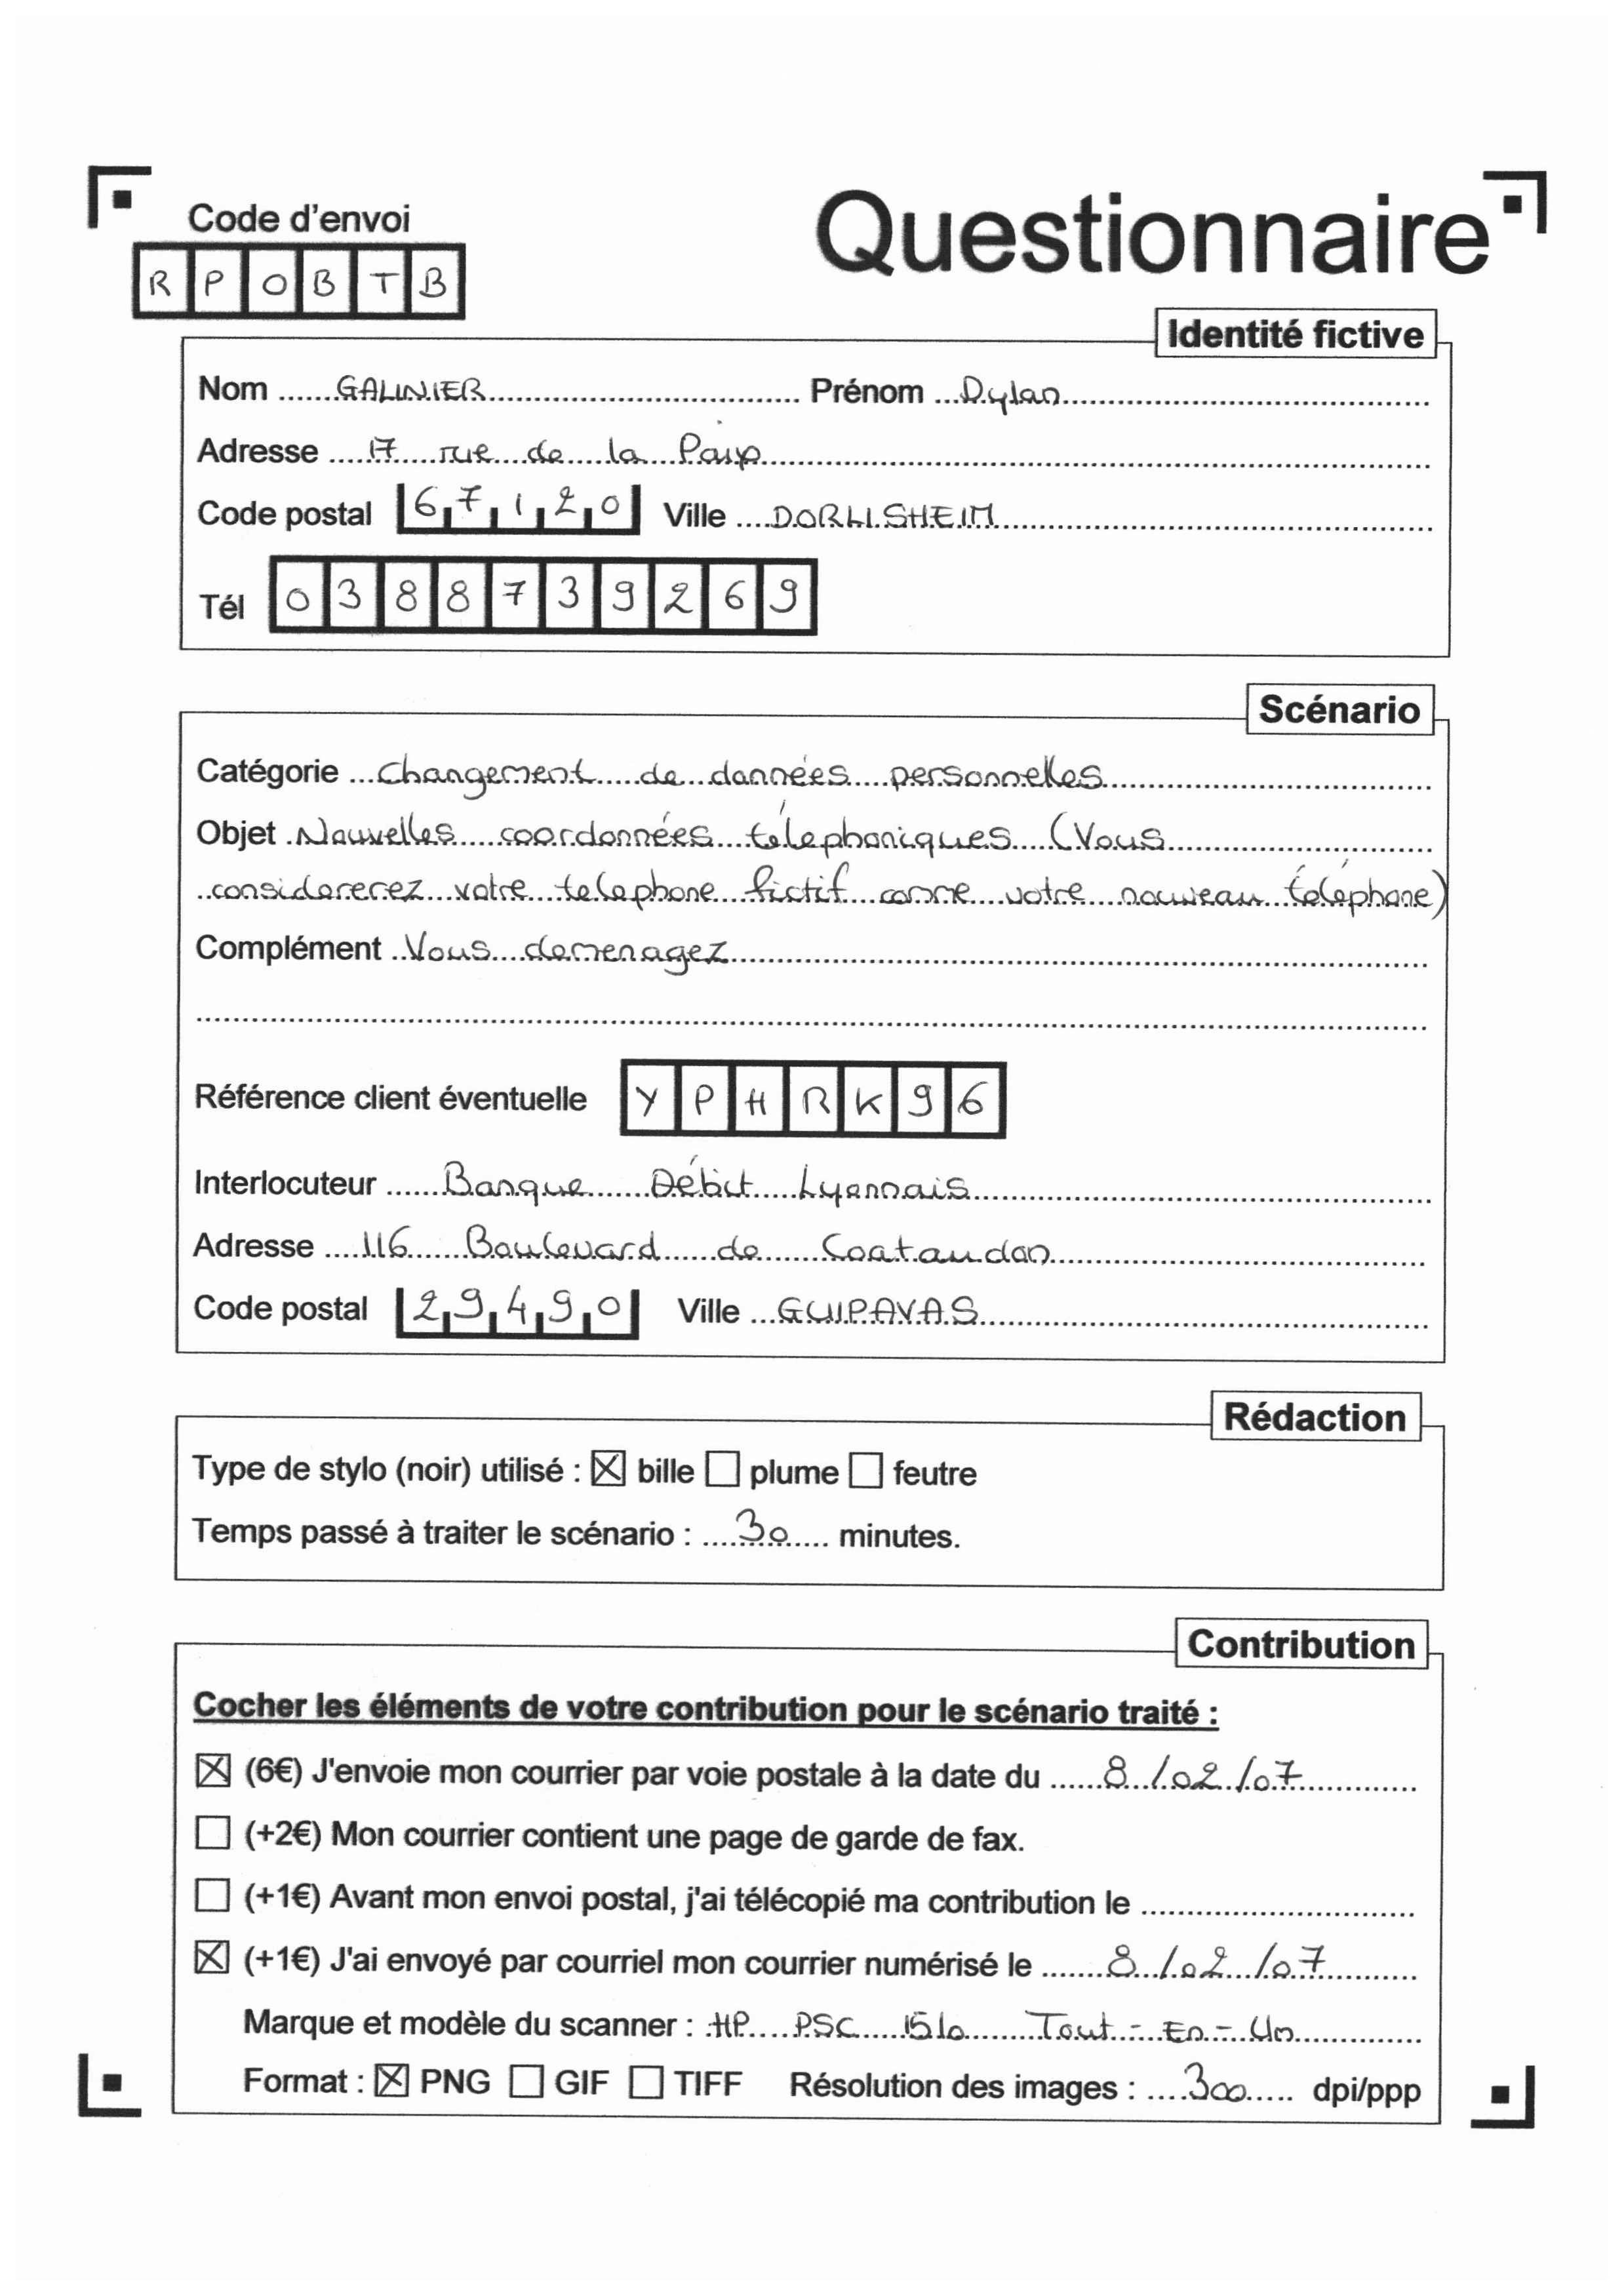 Code d'envoi
Questionnaire
R P O B T B
Identité fictive
Nom GALINIER Prénom Dylan
Adresse 17 rue de la Paix
Code postal 67120 Ville DORLISHEIM
Tél 0388739269
Scénario
Catégorie Changement de données personnelles
Objet Nouvelles coordonnées téléphoniques (Vous
considererez votre telephone fictif comme votre nouveau téléphone)
Complément Vous demenagez
Référence client éventuelle YPHRK96
Interlocuteur Banque Débit Lyonnais
Adresse 116 Boulevard de Coataudon
Code postal 29490 Ville GUIPAVAS
Rédaction
Type de stylo (noir) utilisé : ☒ bille ☐ plume ☐ feutre
Temps passé à traiter le scénario : 30 minutes.
Contribution
Cocher les éléments de votre contribution pour le scénario traité :
☒ (6€) J'envoie mon courrier par voie postale à la date du 8/02/07
☐ (+2€) Mon courrier contient une page de garde de fax.
☐ (+1€) Avant mon envoi postal, j'ai télécopié ma contribution le
☒ (+1€) J'ai envoyé par courriel mon courrier numérisé le 8/02/07
Marque et modèle du scanner : HP PSC 1510 Tout-En-Un
Format : ☒ PNG ☐ GIF ☐ TIFF Résolution des images : 300 dpi/ppp